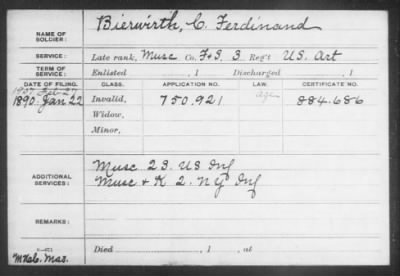 NAME OF SOLDIER: Bierwirth, C. Ferdinand
SERVICE: Late rank, Musc Co. F+S, 3 Reg't U.S. Art
TERM OF SERVICE: Enlisted , 1 Discharged , 1
DATE OF FILING. CLASS. APPLICATION NO. LAW. CERTIFICATE NO.
1907 Feb 27 Age
1890 Jan 22 Invalid, 750.921 884.686
Widow,
Minor,
ADDITIONAL SERVICES: Musc 23. US Inf
Musc + K 2. NY Inf
REMARKS:
Died , 1 , at
Mas.